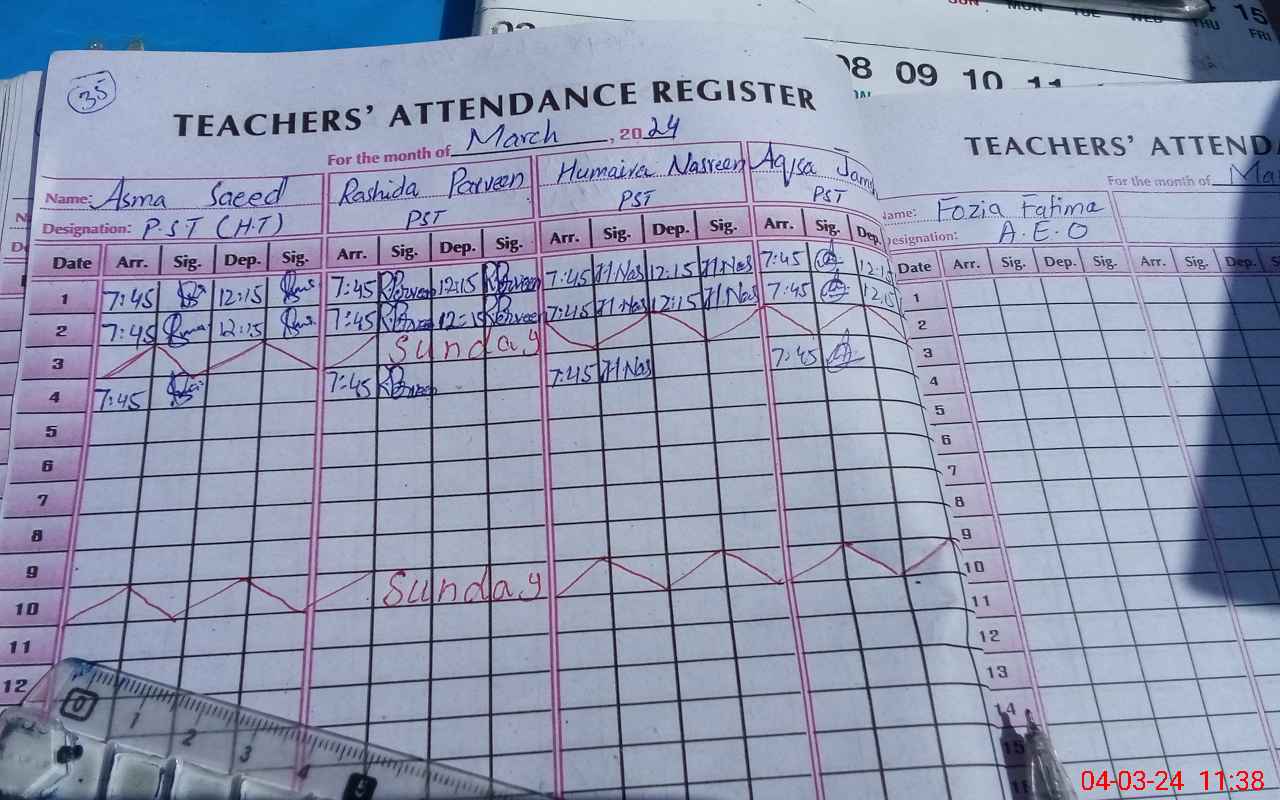 SUN MON TUE WED THU FRI
15
08 09 10 11
35
TEACHERS' ATTENDANCE REGISTER
For the month of March, 2024
Name: Asma Saeed Rashida Parveen Humaira Nasreen Aqsa
Designation: P.S.T (H.T) PST PST PST
Date Arr. Sig. Dep. Sig. Arr. Sig. Dep. Sig. Arr. Sig. Dep. Sig. Arr. Sig. Dep.
1 7:45 12:15 7:45 12:15 7:45 H.Nas 12:15 H.Nas 7:45
2 7:45 12:15 7:45 12:15 7:45 H.Nas 12:15 H.Nas 7:45
3 Sunday
4 7:45 7:45 7:45 H.Nas 7:45
5
6
7
8
9
10 Sunday
11
12
0 1 2 3 4 5
TEACHERS' ATTENDA
For the month of Ma
Name: Fozia Fatima
Designation: A.E.O
Date Arr. Sig. Dep. Sig. Arr. Sig. Dep.
1
2
3
4
5
6
7
8
9
10
11
12
13
14
15
04-03-24 11:38